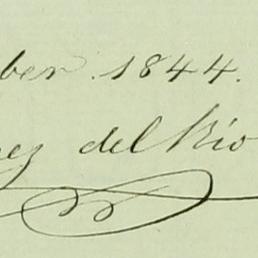 ber 1844.
ez del Río